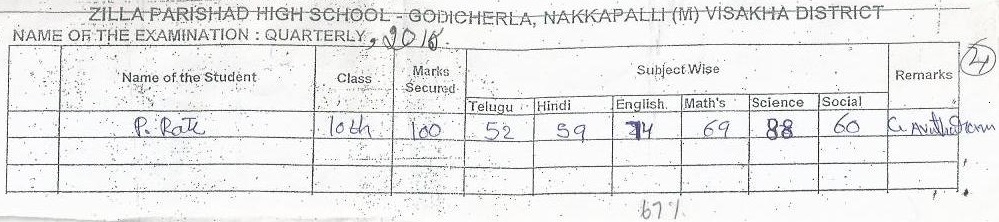 ZILLA PARISHAD HIGH SCHOOL - GODICHERLA, NAKKAPALLI (M) VISAKHA DISTRICT
NAME OF THE EXAMINATION : QUARTERLY, 2015
Name of the Student Class Marks Secured Subject Wise Remarks 24
Telugu Hindi English Math's Science Social
P. 10th 100 52 59 74 69 88 60
67%